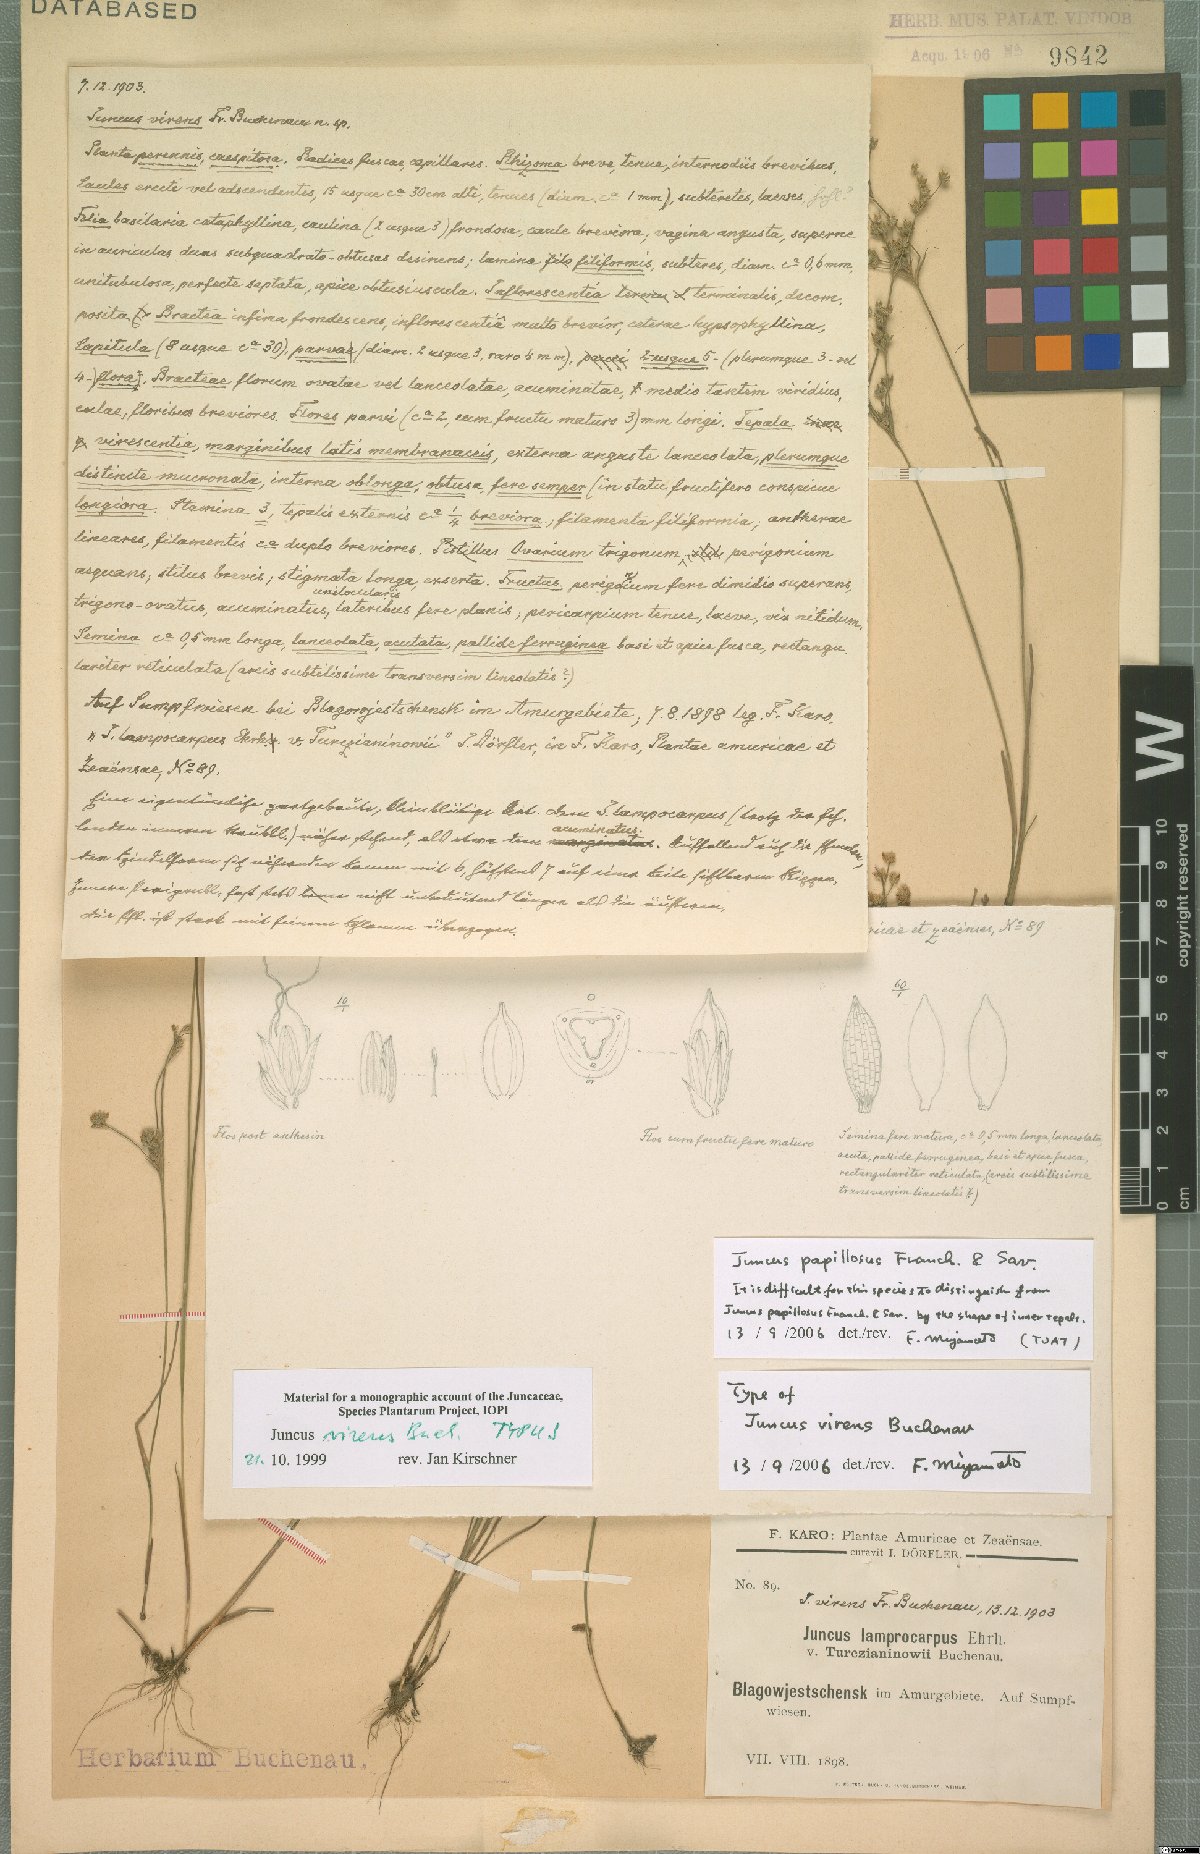 DATABASED
HERB. MUS. PALAT. VINDOB
Acqu. 1906 No 9842
7.12.1903.
Juncus virens Fr. Buchenau n. sp.
Planta perennis, caespitosa. Radices fuscae, capillares. Rhizoma breve, tenue, internodiis brevibus,
Caules erecti vel adscendentis, 15 usque ca 30 cm alti, tenues (diam. ca 1 mm), subteretes, laeves
Folia basilaria cataphyllina, caulina (2 usque 3) frondosa, caule breviora, vagina angusta, superne
in auriculas duas subquadrato-obtusas desinens; lamina filiformis, subteres, diam. ca 0,6 mm,
unitubulosa, perfecte septata, apice obtusiuscula. Inflorescentia terminalis, decom-
posita. Bractea infima frondescens, inflorescentiâ multo brevior, ceterae hypsophyllina,
Capitula (8 usque ca 30), parva (diam. 2 usque 3, raro 5 mm), 2 usque 5- (plerumque 3- vel
4-) flora. Bracteae florum ovatae vel lanceolatae, acuminatae, medio tantem viridius,
culae, floribus breviores. Flores parvi (ca 2, cum fructu maturo 3) mm longi. Tepala
virescentia, marginibus latis membranaceis, externa anguste lanceolata, plerumque
distincte mucronata, interna oblonga, obtusa, fere semper (in statu fructifero conspicue
longiora. Stamina 3, tepalis externis ca 1/4 breviora; filamenta filiformia; antherae
lineares, filamentis ca duplo breviores. Pistillus Ovarium trigonum, perigonium
aequans; stilus brevis; stigmata longa, exserta. Fructus perigonium fere dimidio superans,
unilocularis
trigono-ovatus, acuminatus, lateribus fere planis; pericarpium tenue, laeve, vix nitidum.
Semina ca 0,5 mm longa, lanceolata, acutata, pallide ferruginea basi et apice fusca, rectangu-
lariter reticulata (areis subtilissime transversim lineolatis?)
Auf Sumpfwiesen bei Blagowjestschensk im Amurgebiete, 7.8.1898 leg. F. Karo.
„J. lampocarpus Ehrh. v. Turczianinowii" J. Dörfler, in F. Karo, Plantae amuricae et
Zeaënsae, No 89.
Eine eigentümliche zartgebaute, kleinblütige Art. Dem J. lampocarpus (trotz der feh-
acuminatus
lenden inneren Staubbl.) näher stehend, als etwa dem marginatus. Auffallend
Innere Perigonbl. fast stets nicht unbedeutend länger als die äusseren.
ricae et zeaënses, No 89
10/1
60/1
Flos post anthesin
Flos cum fructu fere maturo
Semina fere matura, ca 0,5 mm longa, lanceolata,
acuta, pallide ferruginea, basi et apice fusca,
rectangulariter reticulata, (areis subtilissime
transversim lineolatis?)
Juncus papillosus Franch. & Sav.
It is difficult for this species to distinguish from
Juncus papillosus Franch. & Sav. by the shape of inner tepals.
13 / 9 /2006 det./rev. F. Miyamoto (TUAT)
Material for a monographic account of the Juncaceae,
Species Plantarum Project, IOPI
Juncus virens Buch. TYPUS
21. 10. 1999 rev. Jan Kirschner
Type of
Juncus virens Buchenau
13 / 9 /2006 det./rev. F. Miyamoto
F. KARO: Plantae Amuricae et Zeaënsae.
curavit I. DÖRFLER.
No. 89.
J. virens Fr. Buchenau, 13.12.1903
Juncus lamprocarpus Ehrh.
v. Turczianinowii Buchenau.
Blagowjestschensk im Amurgebiete. Auf Sumpf-
wiesen.
VII. VIII. 1898.
Herbarium Buchenau.
W
0 1 2 3 4 5 6 7 8 9 10
cm
copyright reserved